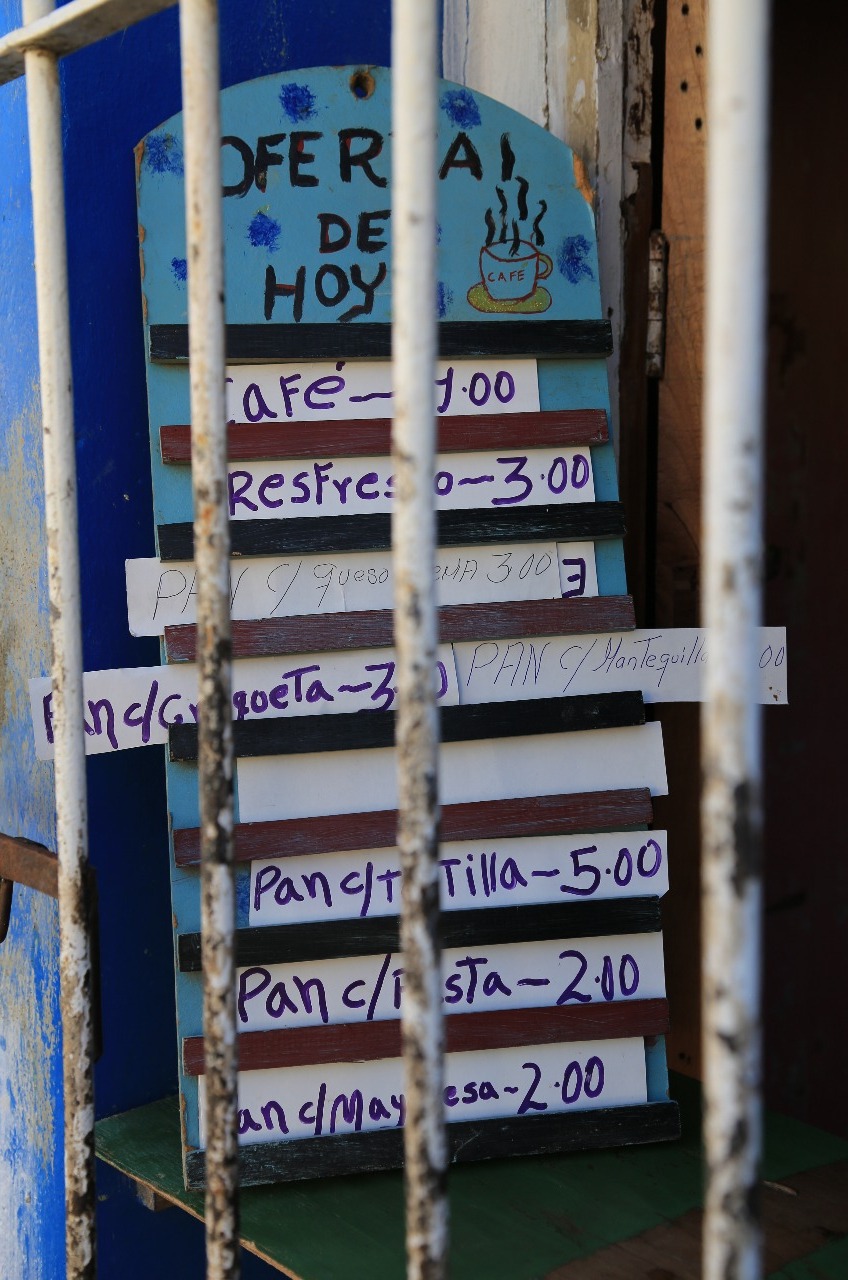 OFERTA!
DE
HOY
CAFE
Café~1.00
Resfresco~3.00
PAN C/ queso 3.00 3
Pan c/Croqueta~3.00 PAN C/Mantequilla 00
Pan c/Tortilla~5.00
Pan c/Pasta~2.00
Pan c/Mayonesa~2.00